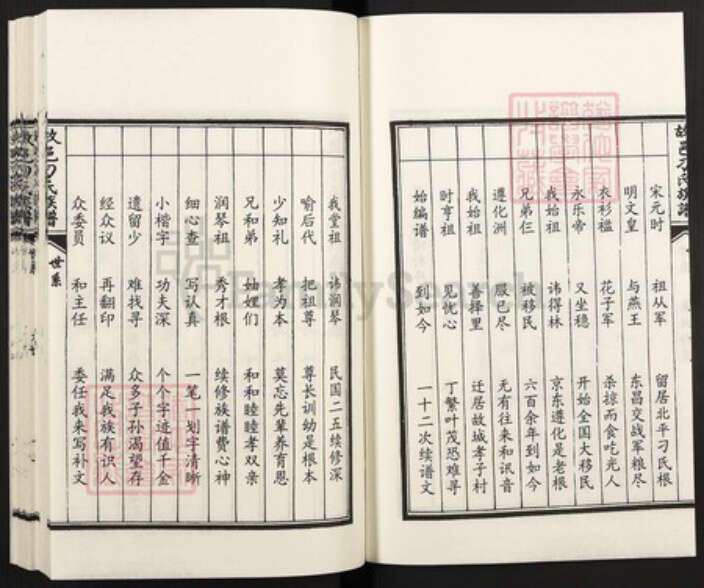 宋元时 祖从军 留居北平刁氏根
明文皇 与燕王 东昌交战军粮尽
衣衫褴 花子军 杀掠而食吃光人
永乐帝 又坐稳 开始全国大移民
我始祖 讳得林 京东遵化是老根
兄弟仨 被移民 六百余年到如今
遵化洲 服已尽 无有往来和讯音
我始祖 善择里 迁居故城孝子村
时亨祖 见忧心 丁繁叶茂恐难寻
始编谱 到如今 一十二次续谱文
我堂祖 讳润琴 民国二五续修深
喻后代 把祖尊 尊长训幼是根本
少知礼 孝为本 莫忘先辈养育恩
兄和弟 妯娌们 和和睦睦孝双亲
润琴祖 秀才根 续修族谱费心神
细心查 写认真 一笔一划字清晰
小楷字 功夫深 个个字迹值千金
遗留少 难找寻 众多子孙渴望存
经众议 再翻印 满足我族有识人
众委员 和主任 委任我来写补文
故邑刁氏族谱
世系
FamilySearch